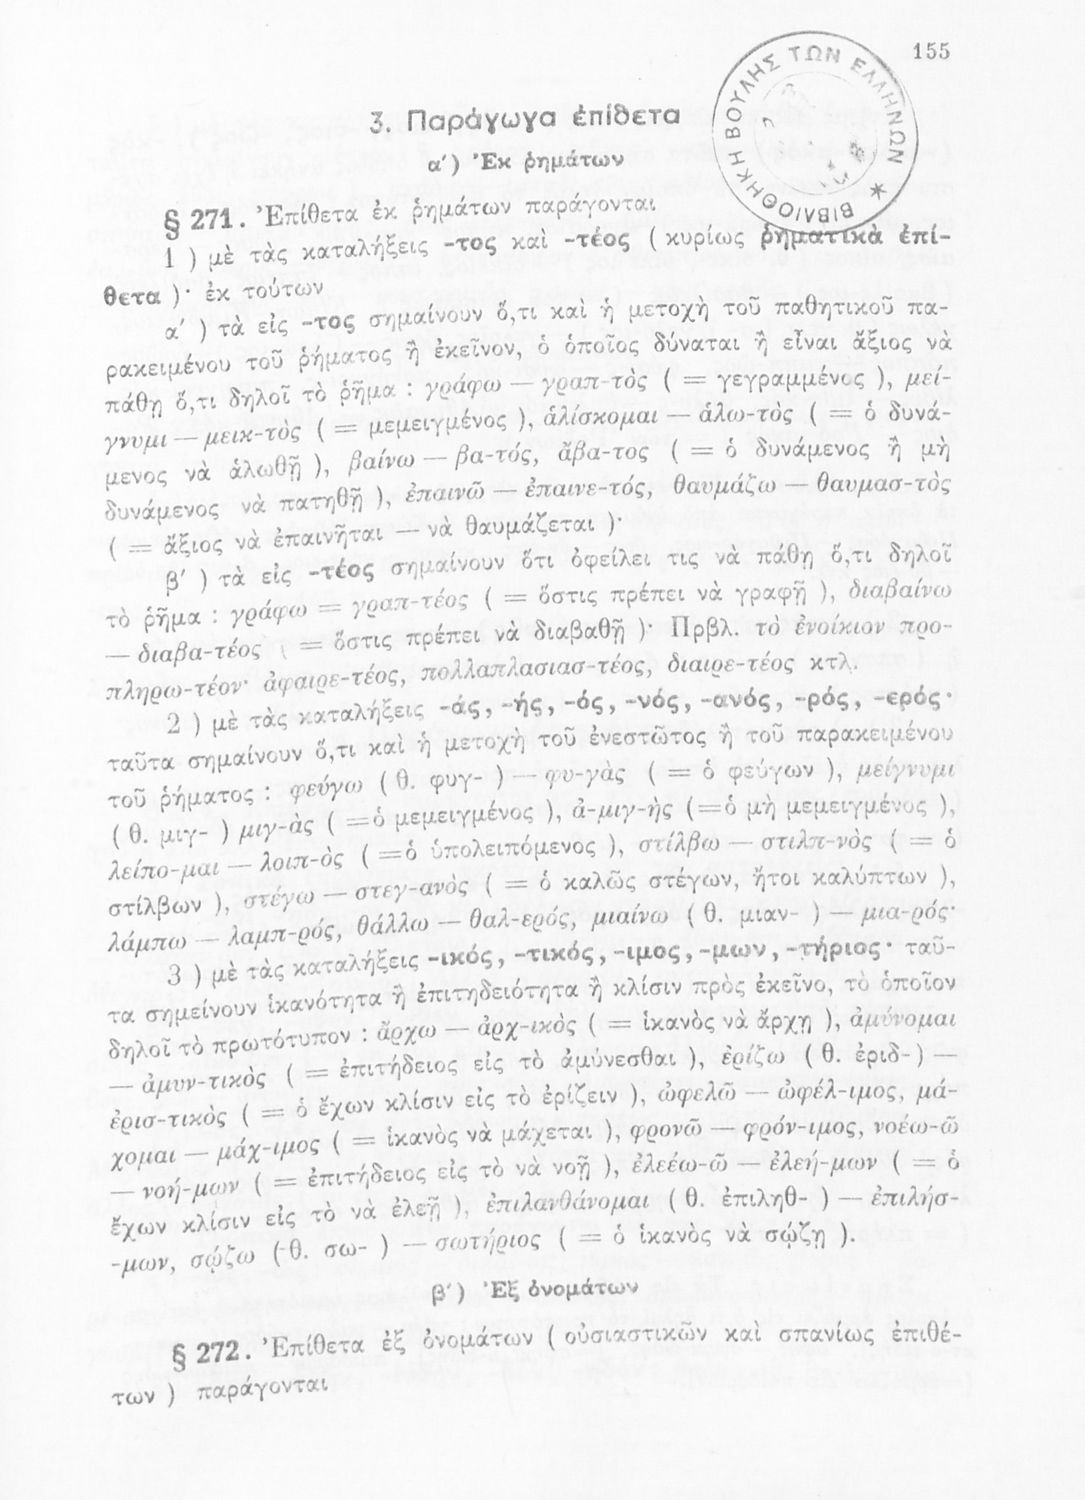 155
ΒΙΒΛΙΟΘΗΚΗ ΒΟΥΛΗΣ ΤΩΝ ΕΛΛΗΝΩΝ
3. Παράγωγα ἐπίθετα
α΄) Ἐκ ῥημάτων
§ 271. Ἐπίθετα ἐκ ῥημάτων παράγονται
1 ) μὲ τὰς καταλήξεις -τος καὶ -τέος ( κυρίως ῥηματικὰ ἐπί-
θετα )· ἐκ τούτων
α΄ ) τὰ εἰς -τος σημαίνουν ὅ,τι καὶ ἡ μετοχὴ τοῦ παθητικοῦ πα-
ρακειμένου τοῦ ῥήματος ἢ ἐκεῖνον, ὁ ὁποῖος δύναται ἢ εἶναι ἄξιος νὰ
πάθῃ ὅ,τι δηλοῖ τὸ ῥῆμα : γράφω — γραπ-τὸς ( = γεγραμμένος ), μεί-
γνυμι — μεικ-τὸς ( = μεμειγμένος ), ἁλίσκομαι — ἁλω-τὸς ( = ὁ δυνά-
μενος νὰ ἁλωθῇ ), βαίνω — βα-τός, ἄβα-τος ( = ὁ δυνάμενος ἢ μὴ
δυνάμενος νὰ πατηθῇ ), ἐπαινῶ — ἐπαινε-τός, θαυμάζω — θαυμασ-τὸς
( = ἄξιος νὰ ἐπαινῆται — νὰ θαυμάζεται )·
β΄ ) τὰ εἰς -τέος σημαίνουν ὅτι ὀφείλει τις νὰ πάθῃ ὅ,τι δηλοῖ
τὸ ῥῆμα : γράφω = γραπ-τέος ( = ὅστις πρέπει νὰ γραφῇ ), διαβαίνω
— διαβα-τέος ( = ὅστις πρέπει νὰ διαβαθῇ )· Πρβλ. τὸ ἐνοίκιον προ-
πληρω-τέον· ἀφαιρε-τέος, πολλαπλασιασ-τέος, διαιρε-τέος κτλ.
2 ) μὲ τὰς καταλήξεις -άς, -ής, -ός, -νός, -ανός, -ρός, -ερός·
ταῦτα σημαίνουν ὅ,τι καὶ ἡ μετοχὴ τοῦ ἐνεστῶτος ἢ τοῦ παρακειμένου
τοῦ ῥήματος : φεύγω ( θ. φυγ- ) — φυ-γὰς ( = ὁ φεύγων ), μείγνυμι
( θ. μιγ- ) μιγ-ὰς ( =ὁ μεμειγμένος ), ἀ-μιγ-ὴς (=ὁ μὴ μεμειγμένος ),
λείπο-μαι — λοιπ-ὸς ( =ὁ ὑπολειπόμενος ), στίλβω — στιλπ-νὸς ( = ὁ
στίλβων ), στέγω — στεγ-ανὸς ( = ὁ καλῶς στέγων, ἤτοι καλύπτων ),
λάμπω — λαμπ-ρός, θάλλω — θαλ-ερός, μιαίνω ( θ. μιαν- ) — μια-ρός·
3 ) μὲ τὰς καταλήξεις -ικός, -τικός, -ιμος, -μων, -τήριος· ταῦ-
τα σημείνουν ἱκανότητα ἢ ἐπιτηδειότητα ἢ κλίσιν πρὸς ἐκεῖνο, τὸ ὁποῖον
δηλοῖ τὸ πρωτότυπον : ἄρχω — ἀρχ-ικὸς ( = ἱκανὸς νὰ ἄρχῃ ), ἀμύνομαι
— ἀμυν-τικὸς ( = ἐπιτήδειος εἰς τὸ ἀμύνεσθαι ), ἐρίζω ( θ. ἐριδ- ) —
ἐρισ-τικὸς ( = ὁ ἔχων κλίσιν εἰς τὸ ἐρίζειν ), ὠφελῶ — ὠφέλ-ιμος, μά-
χομαι — μάχ-ιμος ( = ἱκανὸς νὰ μάχεται ), φρονῶ — φρόν-ιμος, νοέω-ῶ
— νοή-μων ( = ἐπιτήδειος εἰς τὸ νὰ νοῇ ), ἐλεέω-ῶ — ἐλεή-μων ( = ὁ
ἔχων κλίσιν εἰς τὸ νὰ ἐλεῇ ), ἐπιλανθάνομαι ( θ. ἐπιληθ- ) — ἐπιλήσ-
-μων, σῴζω ( θ. σω- ) — σωτήριος ( = ὁ ἱκανὸς νὰ σῴζῃ ).
β΄) Ἐξ ὀνομάτων
§ 272. Ἐπίθετα ἐξ ὀνομάτων ( οὐσιαστικῶν καὶ σπανίως ἐπιθέ-
των ) παράγονται